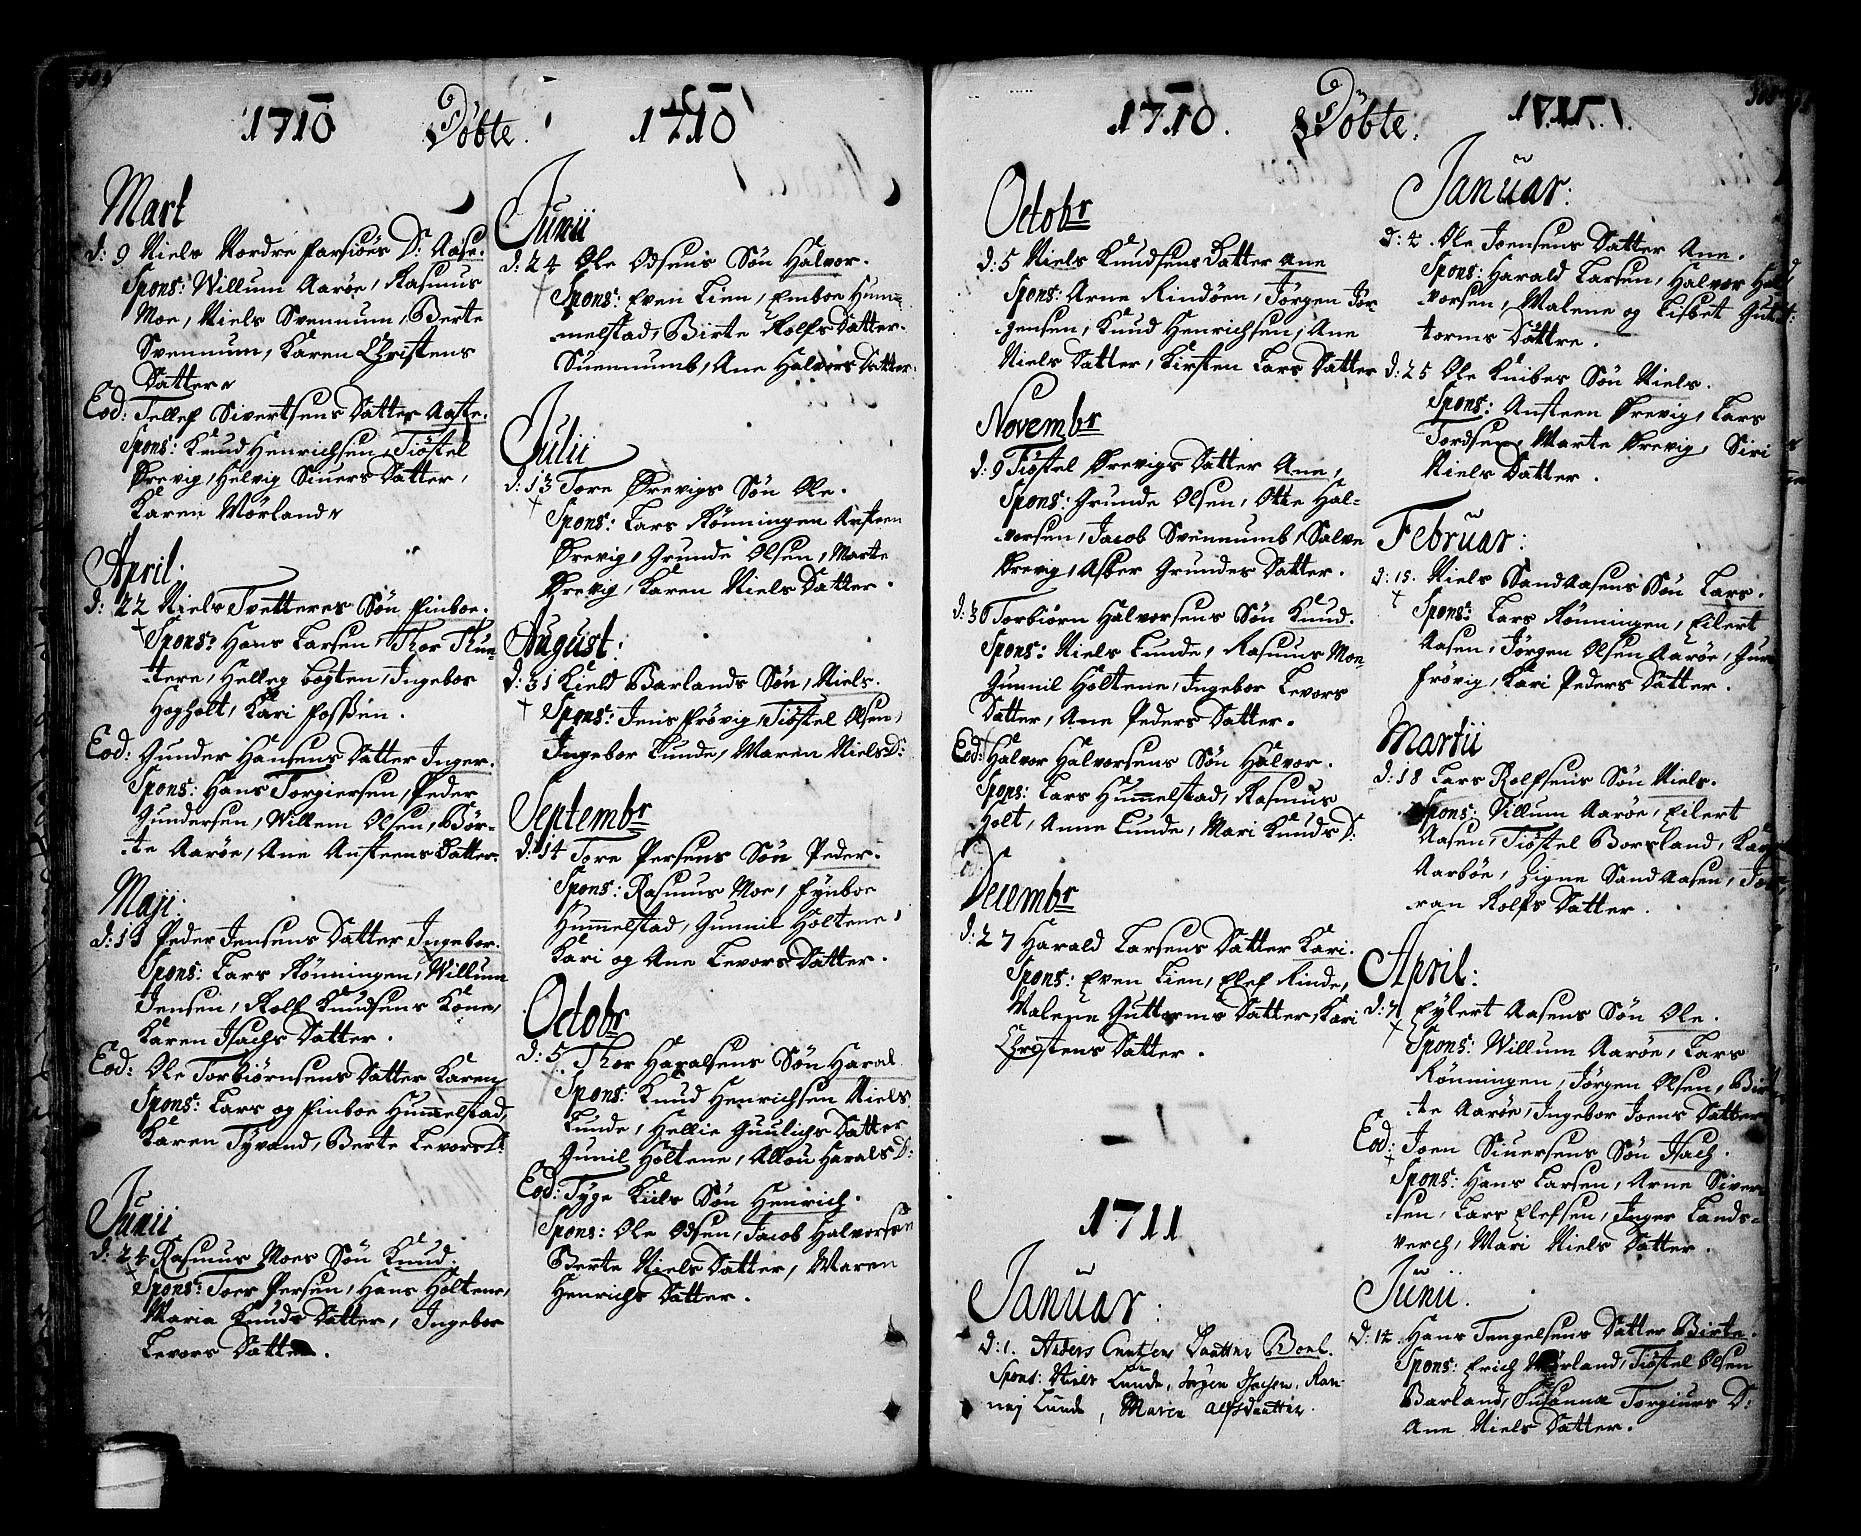 1710 Döbte. 1710
Mart
d: 9 Niels Nordre Farsiöes D: Aase.
Spons: Willum Aaröe, Rasmus
Moe, Niels Svennum, Berte
Svennum, Karen Christens
Datter
Eod: Tellef Sivertsens Datter Aaste.
Spons: Knud Henrichsen, Tiöstel
Örevig, Helvig Siuers Datter,
Karen Mörland
April:
d: 22 Niels Tvetteres Sön Finboe.
Spons: Hans Larsen, Thor
tere, Helleg bogten, Ingebor
Hogholt, Kari Fossen.
Eod: Gunder Hansens Datter Inger.
Spons: Hans Torgiersen, Peder
Gundersen, Willem Olsen, Bör-
te Aaröe, Ane Ansteens Datter.
Maji:
d: 19 Peder Jensens Datter Ingebor.
Spons: Lars Rönningen, Willum
Jensen, Rolf Knudsens Kone,
Karen Isachs Datter.
Eod: Ole Torbiörnsens Datter Karen
Spons: Lars og Finboe Hummelstad,
Karen Tyvand, Berte Levors D:
Junii
d: 24 Rasmus Moes Sön Knud.
Spons: Toer Persen, Hans Holtene,
Maria Knuds Datter, Ingebor
Levors Datter.
Junii
d: 24 Ole Odsens Sön Halvor.
Spons: Even Lien, Emboe Hum-
melstad, Birte Rolfs Datter.
Suennumb, Ane Halvors Datter.
Julii
d: 13 Tore Örevigs Sön Ole.
Spons: Lars Rönningen Ansteen
Örevig, Grunde Olsen, Marte
Örevig, Karen Niels Datter.
August:
d: 31 Kield Barlands Sön, Niels.
Spons: Jens Frövig, Tiöstel Olsen,
Ingebor Lunde, Maren Niels D:
Septembr
d: 14 Tore Persens Sön Peder.
Spons: Rasmus Moe, Fynboe
Hummelstad, Gunnil Holtene,
Kari og Ane Levors Datter.
Octobr
d: 5. Thor Haralsens Sön Haral
Spons: Knud Henrichsen Niels
Lunde, Hellie Guulichs Datter
Gunil Holtene, Allou Harals D:
Eod: Tyge Kiils Sön Henrich.
Spons: Ole Odsen, Jacob Halvorsen
Berte Niels Datter, Maren
Henrichs Datter.
1710. Döbte: 1711.
Octobr
d: 5 Niels Knudsens Datter Ane
Spons: Arne Rindöen, Jörgen Jör-
gensen, Knud Henrichsen, Ane
Niels Datter, Kirsten Lars Datter
Novembr
d: 9 Tiöstel Örevigs Datter Ane,
Spons: Grunde Olsen, Otte Hal-
vorsen, Jacob Svennumb, Salve
Örevig, Asber Grundes Datter.
d: 30 Torbiörn Halvorsens Sön Knud.
Spons: Niels Lunde, Rasmus Moe,
Gunnil Holtene, Ingebor Levors
Datter, Ane Peders Datter.
Eod: Halvor Halvorsens Sön Halvor.
Spons: Lars Hummelstad, Rasmus
Holt, Anne Lunde, Mari Knuds D:
Decembr
d: 27 Harald Larsens Datter Kari.
Spons: Even Lien, Elef Rinde,
Malene Guttorms Datter, Kari
Christens Datter.
1711
Januar:
d: 1. Anders Datter Boel.
Spons: Niels Lunde, Jörgen Ran-
nej Lunde, Maren
Januar:
d: 4. Ole Joensens Datter Ane.
Spons: Harald Larsen, Halvor Hal
vorsen, Malene og Lisbet Gutt:
torms Döttre.
d: 25 Ole Knibes Sön Niels.
Spons: Ansteen Örevig, Lars
Tordsen, Marte Örevig, Siri
Niels Datter.
Februar:
d: 15. Niels Sandaasens Sön Lars.
Spons: Lars Rönningen, Eilert
Aasen, Jörgen Olsen Aaröe,
Frövig, Kari Peders Datter.
Martii
d: 18 Lars Rolfsens Sön Niels.
Spons: Villum Aaröe, Eilert
Aasen, Tiöstel Borsland,
Aarböe, Signe Sandaasen,
ran Rolfs Datter.
April:
d: 7 Eylert Aasens Sön Ole.
Spons: Willum Aaröe, Lars
Rönningen, Jörgen Olsen, Bir
te Aaröe, Ingebor Joens Datter
Eod: Joen Siuersens Sön Isach.
Spons: Hans Larsen, Arne Siver
sen, Lars Elefsen, Inger Lands-
verch, Mari Niels Datter.
Junii.
d: 14. Hans Tengelsens Datter Birte.
Spons: Erich Mörland, Tiöstel Olsen
Barland, Susanna Torgiurs D:
Ane Niels Datter.